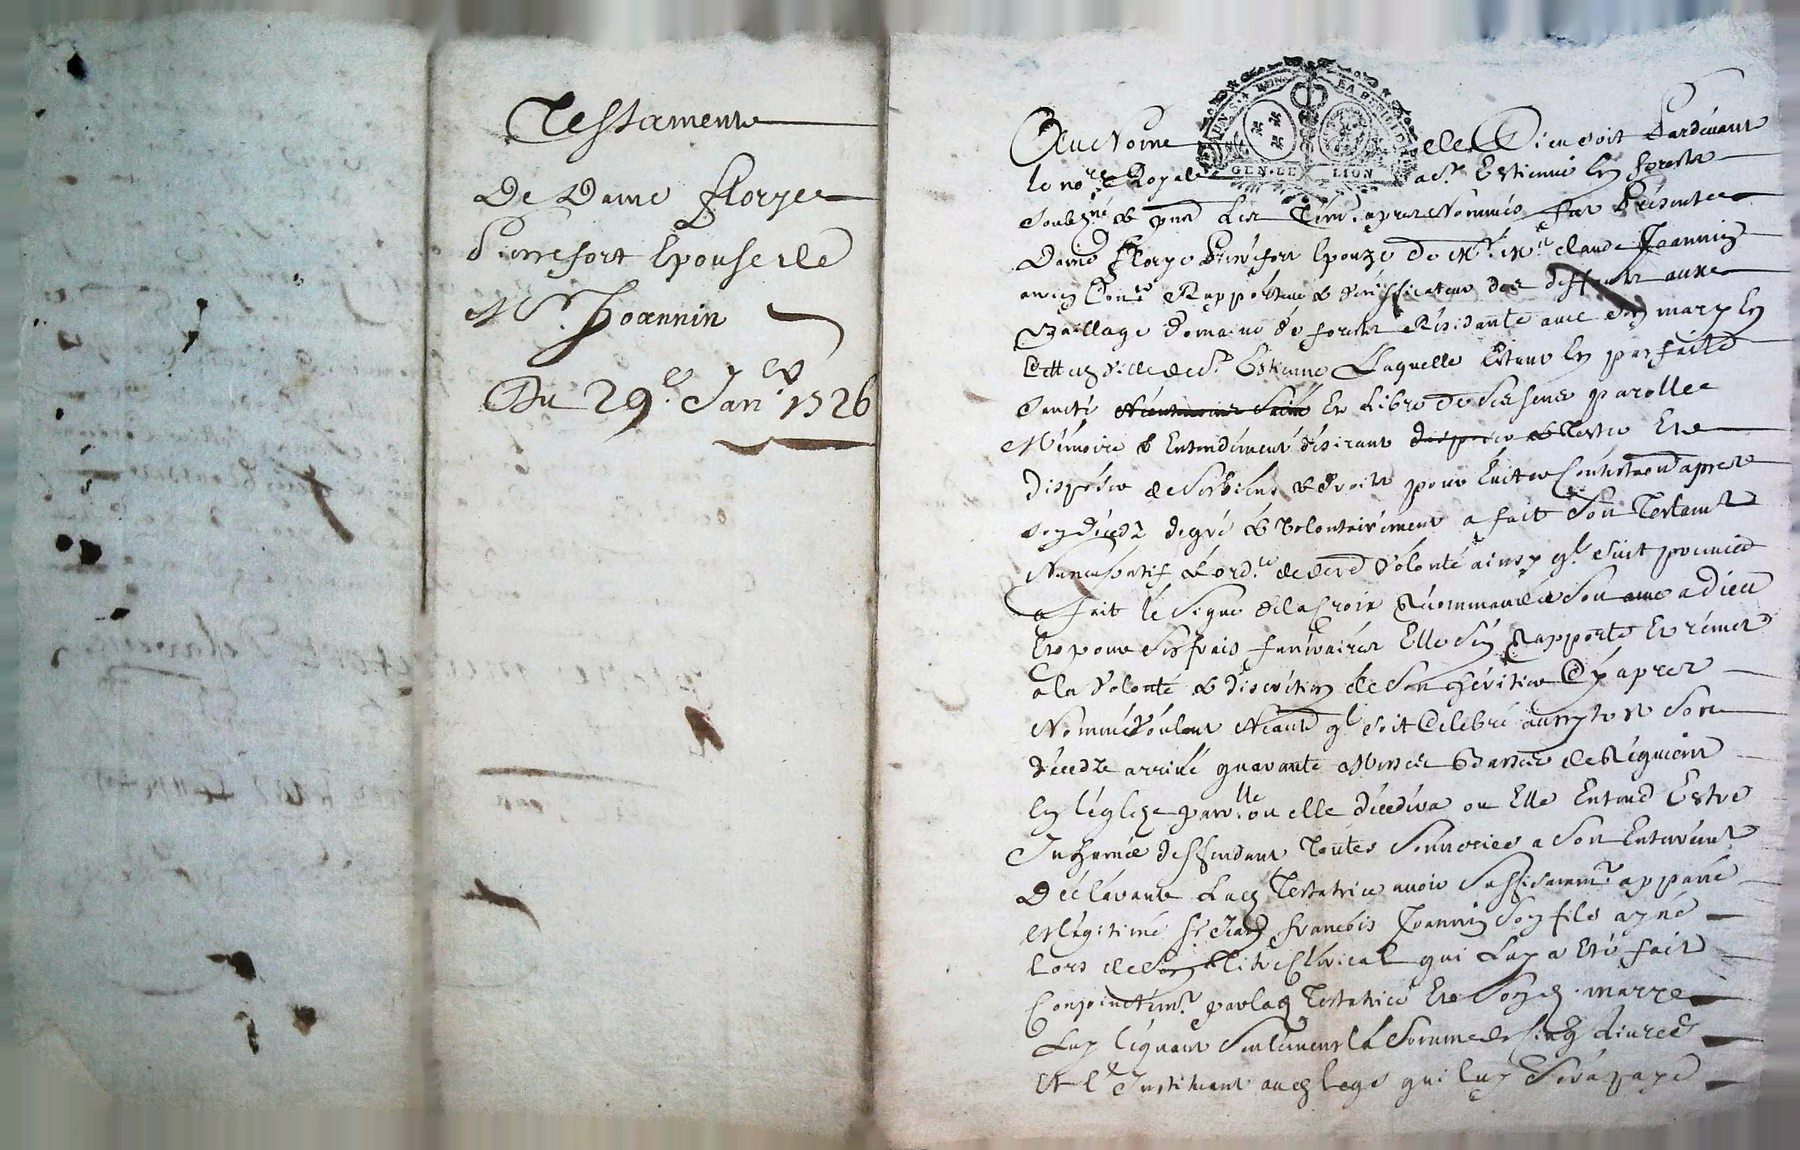 Testament
De Dame Florye
Pierrefort Epouse de
Mr. Joannin
Du 29e Janer 1726
GEN. DE LION
Au Nom de Dieu soit Pardevant
le nore Royal a St Estienne En forest
soubzné & pnt les Tém. apres Nommés fut Présente
Dame Florye Pierrefort Epouze de Mr. Me Claude Joannin
ancien Con.er Rapporteur & Vériffieateur des deffauts au
Baillage Domaine de forest Résidante avec son mary En
Cette ville de St. Estienne Laquelle Estant En parfaite
santé Et Libre de ses sens parolle
Mémoire & Entendement désirant Tester Et
disposer de ses biens & droits pour Eviter Contestaon apres
son décedz de gré & Volontairement a fait Son Testamt
Nuncupatif & ordre de derre Volonté ainsy ql. suit premier
a fait le Signe de la Croix Recommandé son ame a dieu
Et pour ses frais funéraires Elle s'en Rapporte Et rémet
a la Volonté & discrétion de son héritier Cy apres
Nommé Voulant Néant ql soit Célébré aussytost son
décedz arrivé quarante Messes Basses de Réquiem
En l'églize parrlle ou elle décedera ou Elle Entend Estre
Inhumée deffendant Toutes Sonneries a Son Enterremt
Déclarant Lad Testatrice avoir Suffisamt appané
et légitimé Sr. Jean francois Joannin Son fils ayné
lors de son Titre Clérical qui Luy a Eté fait
Conjointemt. par lad Testatrice Et Sond. mary
Luy léguant Seulement la Somme de Cinq Livres
Et l'Instituant aud legs qui luy Sera payé